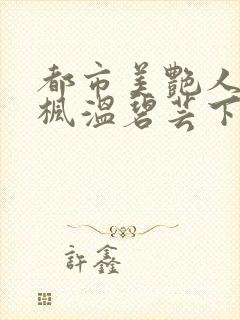 都市美艷人
楓溫碧芸下
許鑫